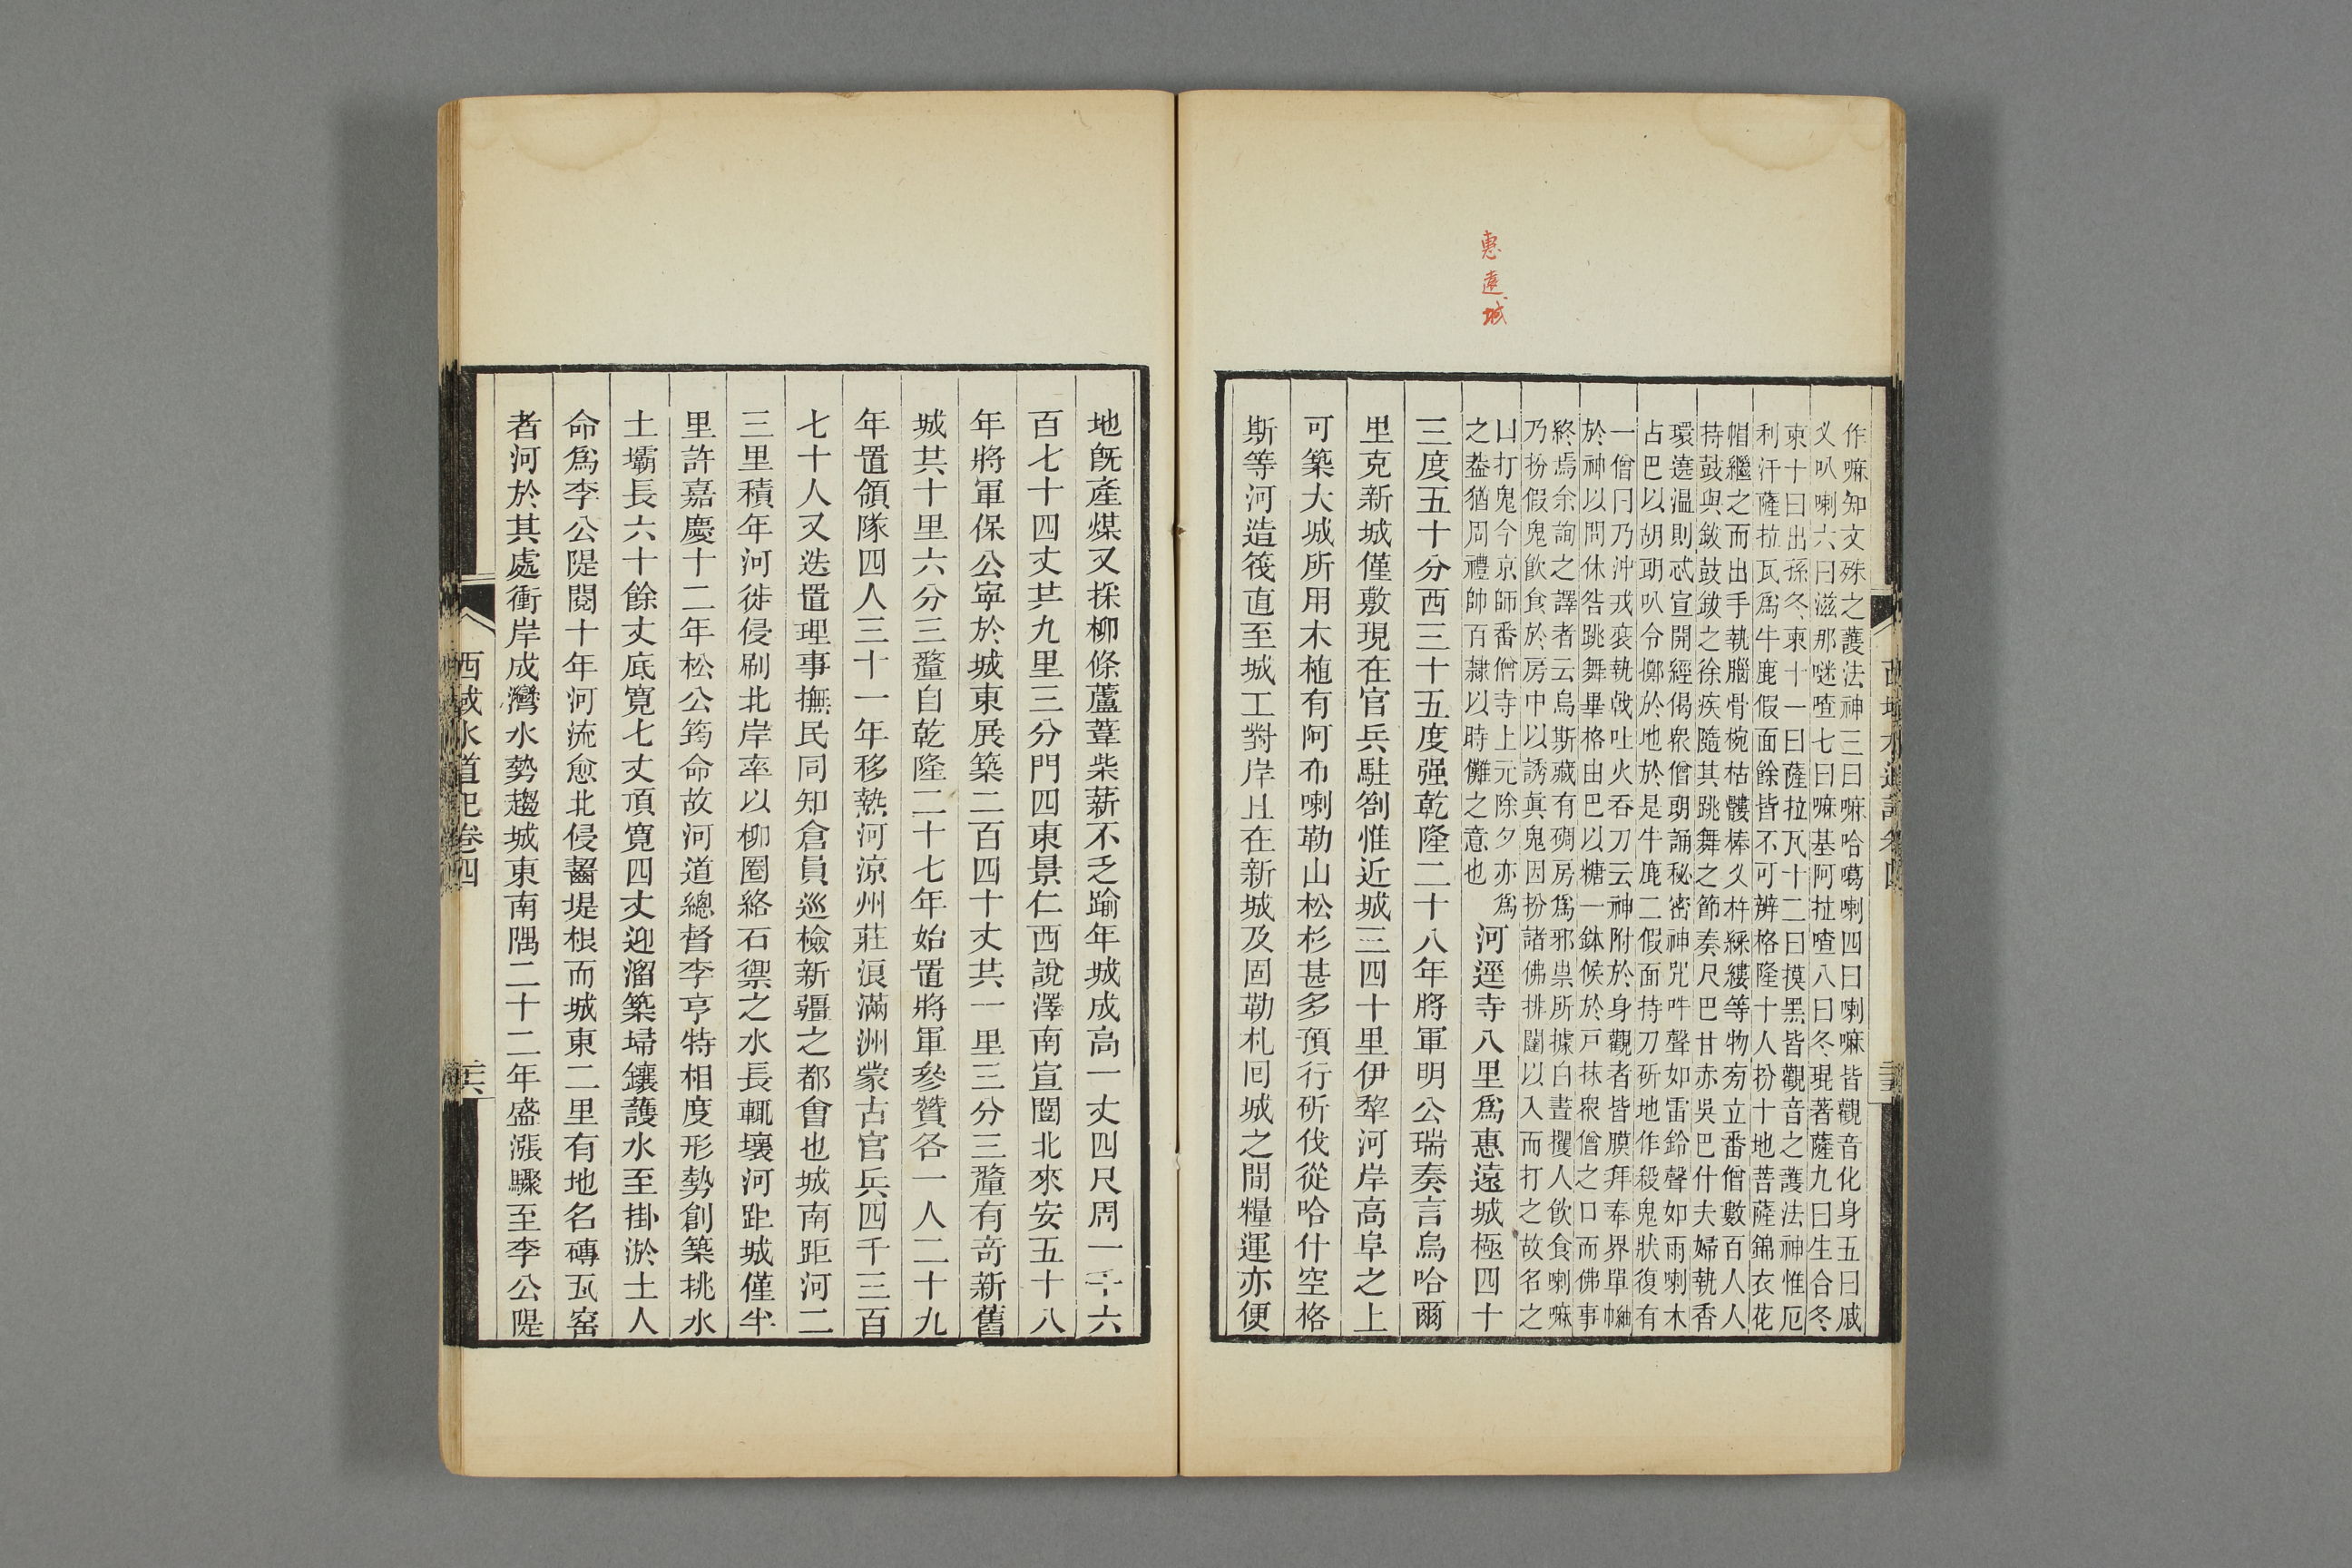 惠遠城
作嘛知文殊之護法神三曰嘛哈噶喇四曰喇嘛皆觀音化身五曰戚
义叭喇六曰滋那噠喳七曰嘛基阿扯喳八曰冬琨著薩九曰生合冬
東十曰出孫冬東十一曰薩拉瓦十二曰摸黑皆觀音之護法神惟厄
利汗薩拉瓦爲牛鹿假面餘皆不可辨格隆十人扮十地菩薩錦衣花
帽繼之而出手執腦骨椀枯髏棒久杵綵縷等物旁立番僧數百人人
持鼓與鈸鼓鈸之徐疾隨其跳舞之節奏尺巴甘赤吳巴什夫婦執香
環遶温則忒宣開經偈衆僧朗誦秘密神咒吽聲如雷鈴聲如雨喇木
占巴以胡朗叭令擲於地於是牛鹿二假面持刀斫地作殺鬼狀復有
一僧曰乃沖戎裝執戟吐火吞刀云神附於身觀者皆膜拜奉界單紬
於神以問休咎跳舞畢格由巴以糖一鉢候於戸抹衆僧之口而佛事
終焉余詢之譯者云烏斯藏有碉房爲邪祟所據白晝攫人飲食喇嘛
乃扮假鬼飲食於房中以誘眞鬼因扮諸佛排闥以入而打之故名之
曰打鬼今京師番僧寺上元除夕亦爲
之葢猶周禮帥百隸以時儺之意也
河逕寺八里爲惠遠城極四十
三度五十分西三十五度强乾隆二十八年將軍明公瑞奏言烏哈爾
里克新城僅敷現在官兵駐劄惟近城三四十里伊犂河岸高阜之上
可築大城所用木植有阿布喇勒山松杉甚多預行斫伐從哈什空格
斯等河造筏直至城工對岸且在新城及固勒札囘城之間糧運亦便
地旣產煤又採柳條蘆葦柴薪不乏踰年城成高一丈四尺周一千六
百七十四丈共九里三分門四東景仁西說澤南宣闓北來安五十八
年將軍保公寧於城東展築二百四十丈共一里三分三釐有奇新舊
城共十里六分三釐自乾隆二十七年始置將軍參贊各一人二十九
年置領隊四人三十一年移熱河涼州莊浪滿洲蒙古官兵四千三百
七十人又迭置理事撫民同知倉員巡檢新疆之都會也城南距河二
三里積年河徙侵刷北岸率以柳圏絡石禦之水長輒壞河距城僅半
里許嘉慶十二年松公筠命故河道總督李亨特相度形勢創築挑水
土壩長六十餘丈底寛七丈頂寛四丈迎溜築埽鑲護水至掛淤土人
命爲李公隄閱十年河流愈北侵齧堤根而城東二里有地名磚瓦窑
者河於其處衝岸成灣水勢趨城東南隅二十二年盛漲驟至李公隄
西域水道記卷四